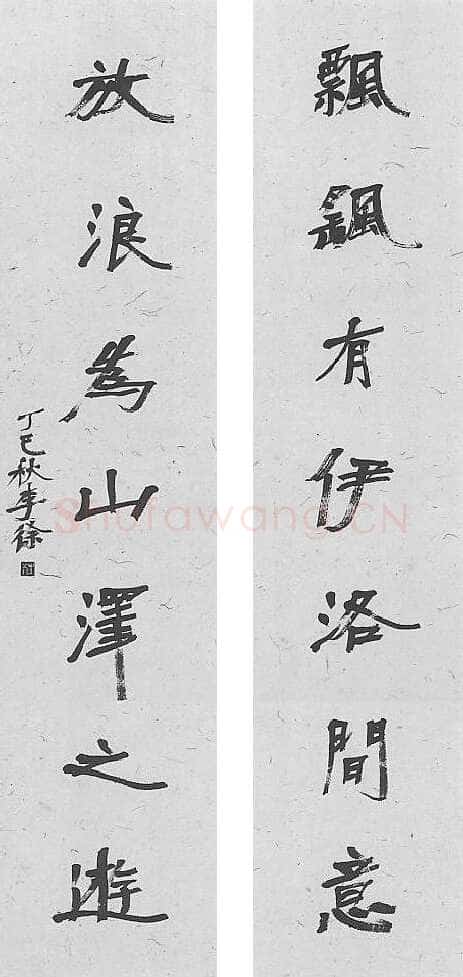 飄颻有伊洛間意
放浪為山澤之遊
丁巳秋李
Shufawang.CN